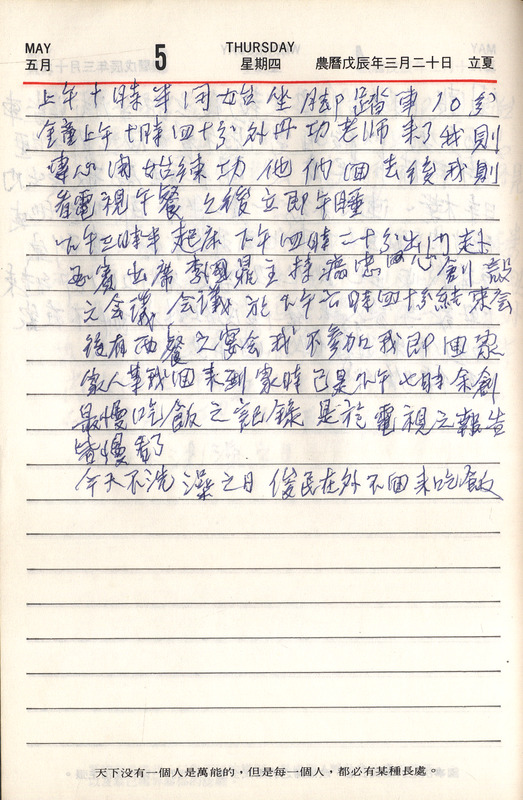 MAY 5 THURSDAY
五月 星期四 農曆戊辰年三月二十日 立夏
上午十時半開始坐脚踏車10分
鐘 上午十時四十分外丹功老师来了我則
專心開始練功 他们回去後我則
看電視午餐之後立即午睡
下午三時半起床 下午四時二十分出门赴
賓出席李國鼎主持 創設
之会議 会議於下午六時四十分結束会
後有西餐之宴会我不參加我即回家
家人等我回来到家時已是下午七時余創
最慢吃飯之記錄 是於電視之報告
皆慢看了
今天不洗澡之日 俊民在外不回来吃飯
天下没有一個人是萬能的，但是每一個人，都必有某種長處。